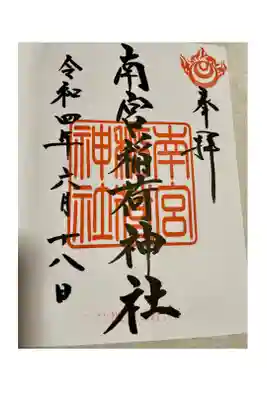 奉拝
南宮稲荷神社
南宮稲荷神社
令和四年六月十八日